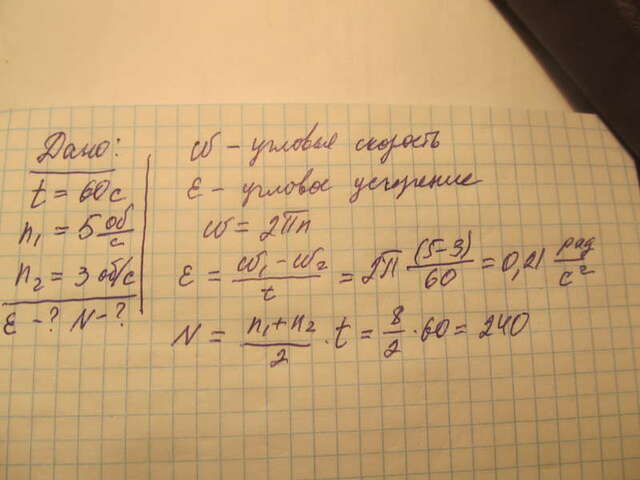 Дано:
t = 60 с
n₁ = 5 об/с
n₂ = 3 об/с
ε - ? N - ?
ω - угловая скорость
ε - угловое ускорение
ω = 2πn
ε = (ω₁ - ω₂)/t = 2π (5-3)/60 = 0,21 рад/с²
N = (n₁ + n₂)/2 · t = 8/2 · 60 = 240